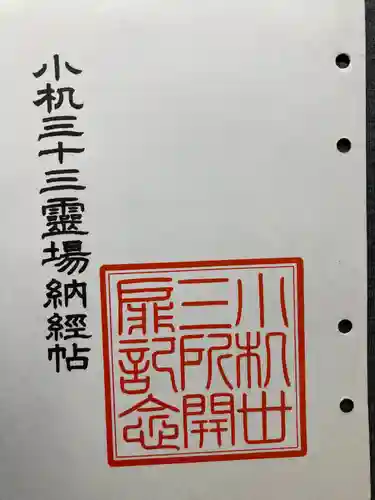 小机三十三靈場納經帖
小机丗
三所開
扉記念